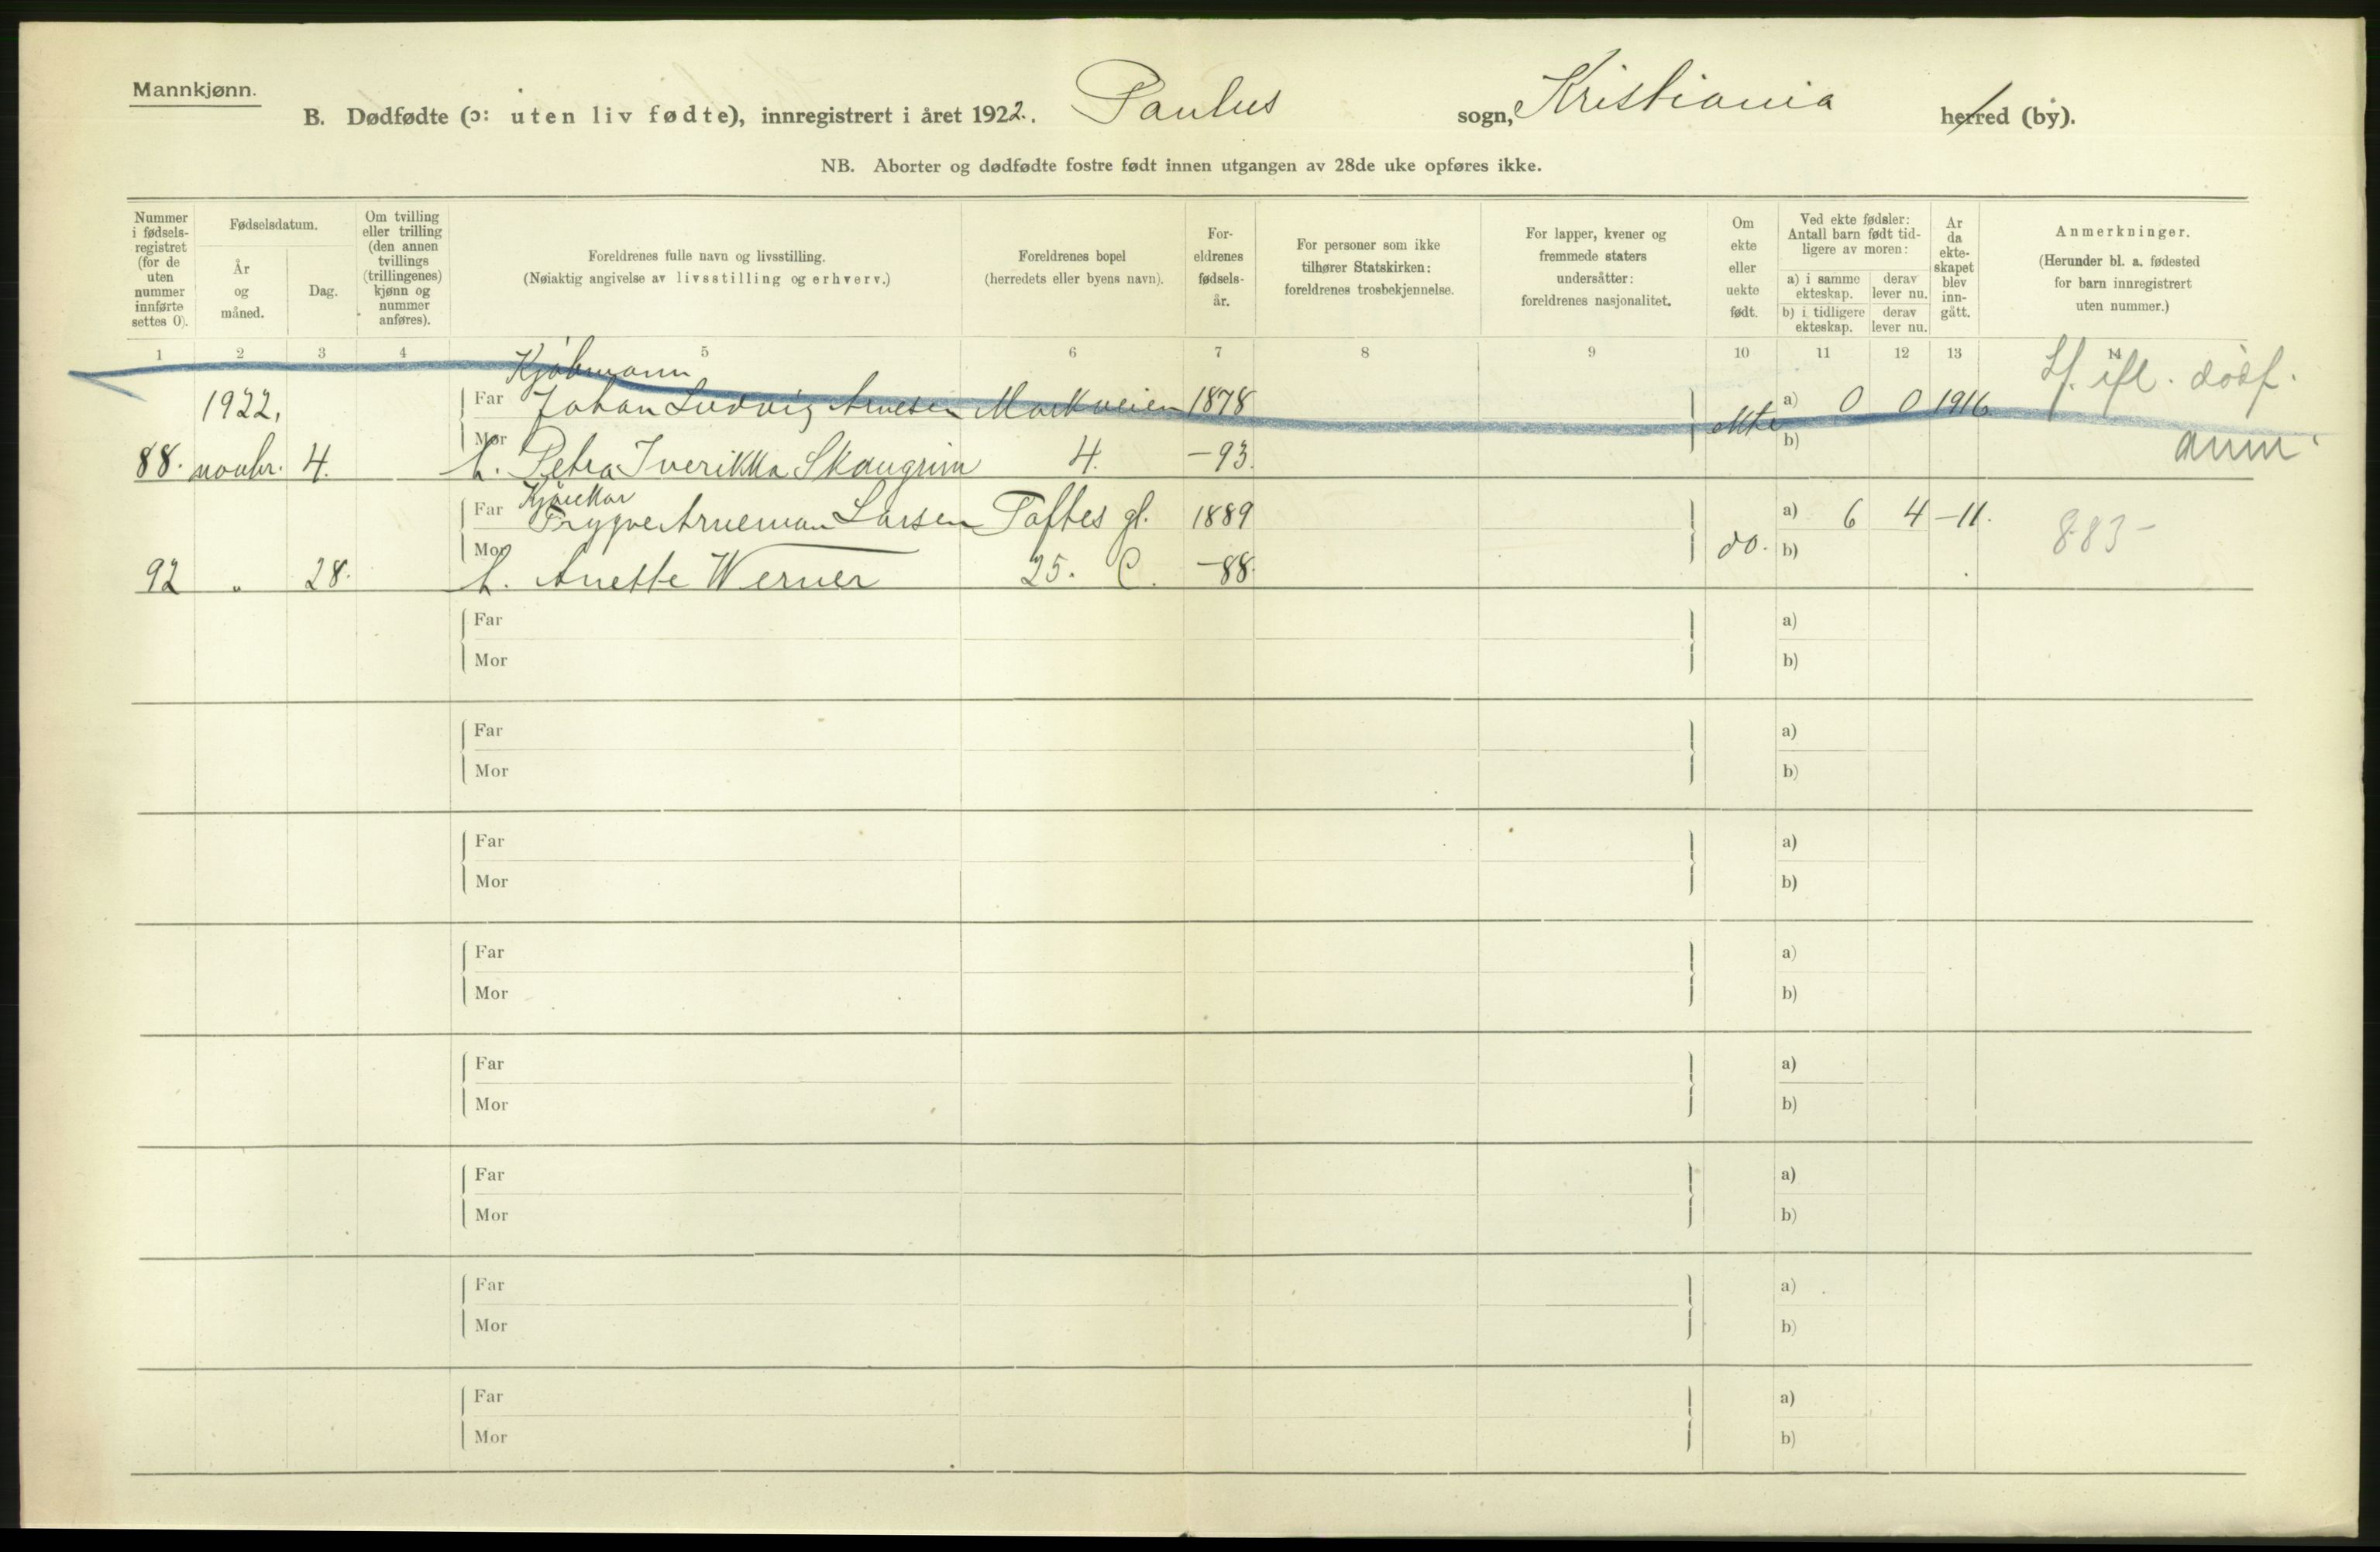 Mannkjønn.
B. Dødfødte (ɔ: uten liv fødte), innregistrert i året 1922. Paulus sogn, Kristiania herred (by).
NB. Aborter og dødfødte fostre født innen utgangen av 28de uke opføres ikke.
Nummer i fødsels-registret (for de uten nummer innførte settes 0).
Fødselsdatum.
År og måned.
Dag.
Om tvilling eller trilling (den annen tvillings (trillingenes) kjønn og nummer anføres).
Foreldrenes fulle navn og livsstilling.
(Nøiaktig angivelse av livsstilling og erhverv.)
Foreldrenes bopel
(herredets eller byens navn).
For-eldrenes fødsels-år.
For personer som ikke tilhører Statskirken: foreldrenes trosbekjennelse.
For lapper, kvener og fremmede staters undersåtter: foreldrenes nasjonalitet.
Om ekte eller uekte født.
Ved ekte fødsler: Antall barn født tid-ligere av moren:
a) i samme ekteskap.
derav lever nu.
b) i tidligere ekteskap.
derav lever nu.
År da ekte-skapet blev inn-gått.
Anmerkninger.
(Herunder bl. a. fødested for barn innregistrert uten nummer.)
1 2 3 4 5 6 7 8 9 10 11 12 13 14
Kjøbmann
1922, Far Johan Ludvig Arnesen Markveien 1878 ekte a) 0 0 1916 dødf.
88. novbr. 4. Mor h. Petra 4. -93. b) anm.
Far Trygve Larsen Toftes gt. 1889 do. a) 6 4 -11. 883-
92 " 28. Mor h. Anette Werner 25. C. -88. b)
Far a)
Mor b)
Far a)
Mor b)
Far a)
Mor b)
Far a)
Mor b)
Far a)
Mor b)
Far a)
Mor b)
Far a)
Mor b)
Far a)
Mor b)